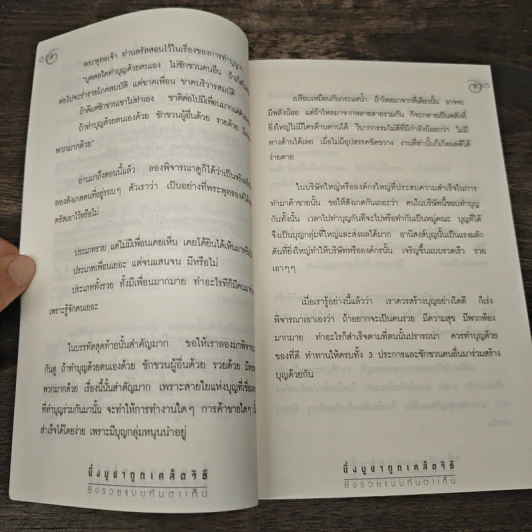 พระพุทธเจ้า ท่านตรัสสอนไว้ในเรื่องของการทำบุญว่า
"บุคคลใดทำบุญด้วยตนเอง ไม่ชักชวนคนอื่น
ต่อไปจะร่ำรวยโภคสมบัติ แต่ขาดเพื่อน ขาดบริวารสมบัติ
ถ้าดีแต่ชักชวนเขาไม่ทำเอง ชาติต่อไปมีเพื่อนมากแต่
ถ้าทำบุญด้วยตนเองด้วย ชักชวนผู้อื่นด้วย รวยด้วย
พวกมากด้วย"
อ่านมาถึงตอนนี้แล้ว ลองพิจารณาดูก็ได้ว่าเป็นจริง
ลองสังเกตคนที่อยู่รอบๆ ตัวเราว่า เป็นอย่างที่พระพุทธองค์
ตรัสเอาไว้หรือไม่
ประเภทรวย แต่ไม่มีเพื่อนเคยเห็น เคยได้ยินได้เห็นมา
ประเภทเพื่อนเยอะ แต่จนแสนจน มีหรือไม่
ประเภททั้งรวย ทั้งมีเพื่อนมากมาย ทำอะไรก็มี
เพราะรู้จักคนเยอะ
ในบรรทัดสุดท้ายนั้นสำคัญมาก ขอให้เราลองมาพิจารณา
กันดู ถ้าทำบุญด้วยตนเองด้วย ชักชวนผู้อื่นด้วย รวยด้วย
พวกมากด้วย เรื่องนี้นั้นสำคัญมาก เพราะสายใยแห่งบุญที่
ที่ทำบุญร่วมกันมานั้น จะทำให้การทำงานใดๆ การค้าขายใดๆ
สำเร็จได้โดยง่าย เพราะมีบุญกลุ่มหนุนนำอยู่
ยิ่งบูชาถูกเคล็ดวิธี
ยิ่งรวยแบบทันตาเห็น
เปรียบเหมือนกับกระแสน้ำ ถ้าไหลมาจากที่เดียวนั้น อาจจะ
มีพลังน้อย แต่ถ้าไหลมาจากหลายสายรวมกัน ก็จะกลายเป็นพลังที่
ยิ่งใหญ่ไม่มีใครต้านทานได้ วิบากกรรมไม่ดีที่มีกำลังน้อยกว่า ไม่มี
ทางต้านได้เลย เมื่อไม่มีอุปสรรคขัดขวาง งานที่ทำนั้นก็เกิดผลดีได้
ง่ายดาย
ในบริษัทใหญ่หรือองค์กรใหญ่ที่ประสบความสำเร็จในการ
ทำมาค้าขายนั้น ขอให้สังเกตกันเถอะว่า คนในบริษัทนี้ชอบทำบุญ
กันทั้งนั้น เวลาไปทำบุญกันก็จะไปหรือทำกันเป็นหมู่คณะ บุญที่ได้
จึงเป็นบุญกลุ่มที่ใหญ่และส่งผลได้มาก อานิสงส์บุญนั้นเป็นแรงผลัก
ดันที่ยิ่งใหญ่ทำให้บริษัทหรือองค์กรนั้น เจริญขึ้นแบบรวดเร็ว รวย
เอาๆๆ
เมื่อเรารู้อย่างนี้แล้วว่า เราควรสร้างบุญอย่างใดดี ก็เร่ง
พิจารณาเอาเองว่า ถ้าอยากจะเป็นคนรวย มีความสุข มีพวกพ้อง
มากมาย ทำอะไรก็สำเร็จตามที่ตนนั้นปรารถนา ควรทำบุญด้วย
ของที่ดี ทำทานให้ครบทั้ง 3 ประการและชักชวนคนอื่นมาร่วมสร้าง
บุญด้วยกัน
ยิ่งบูชาถูกเคล็ดวิธี
ยิ่งรวยแบบทันตาเห็น